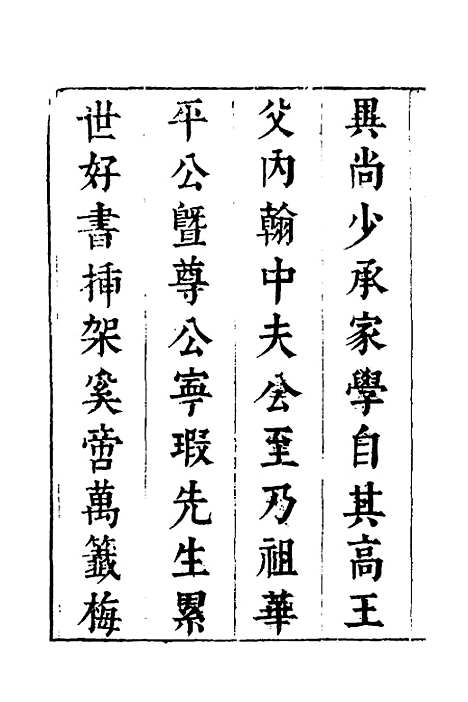 異尚少承家學自其高王
父內翰中夫公至乃祖華
平公暨尊公寧瑕先生累
世好書揷架奚啻萬籤梅